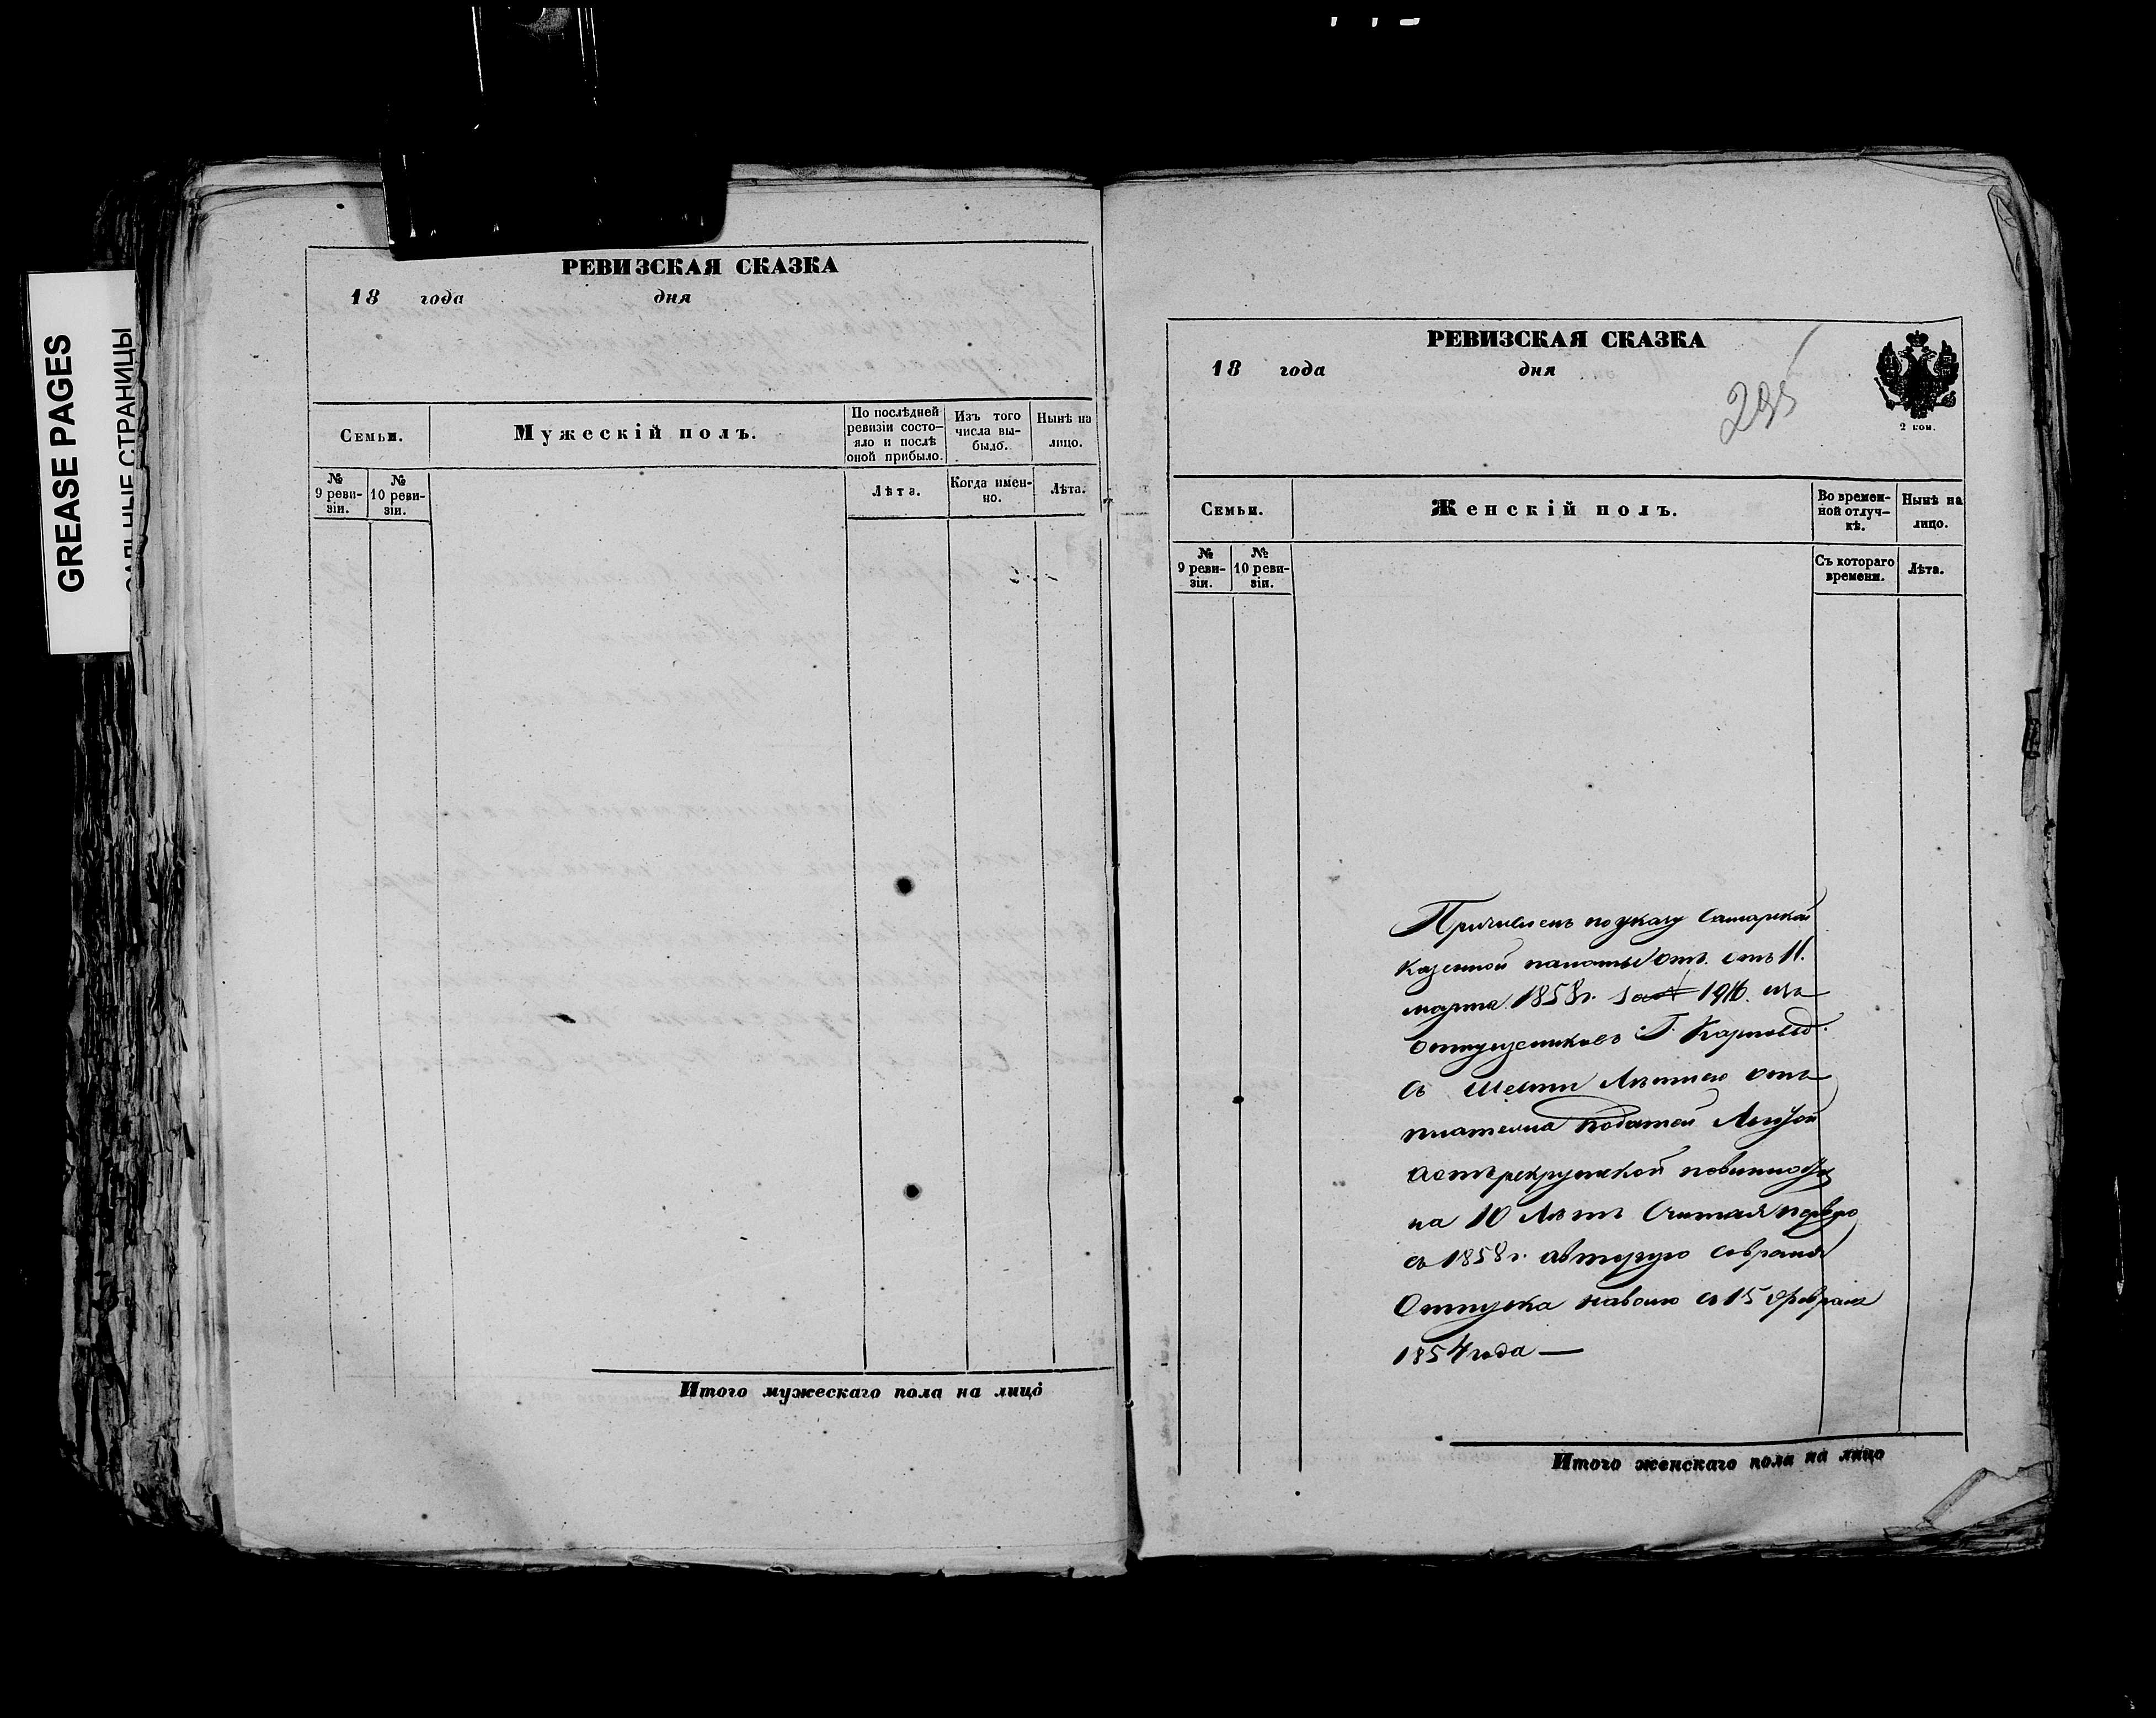 GREASE PAGES
САЛЬНЫЕ СТРАНИЦЫ
РЕВИЗСКАЯ СКАЗКА
18 года дня
Семьи.
Мужескій полъ.
По послѣдней
ревизіи состо-
яло и послѣ
оной прибыло.
Изъ того
числа вы-
было.
Нынѣ на
лицо.
№
9 реви-
зіи.
№
10 реви-
зіи.
Лѣта.
Когда имен-
но.
Лѣта.
Итого мужескаго пола на лицо
РЕВИЗСКАЯ СКАЗКА
18 года дня
295
2 коп.
Семьи.
Женскій полъ.
Во времен-
ной отлуч-
кѣ.
Нынѣ на
лицо.
№
9 реви-
зіи.
№
10 реви-
зіи.
Съ котораго
времени.
Лѣта.
Причисленъ по указу Самарской
Казенной палаты отъ 11.
марта 1858 г. за 1916. изъ
отпущенниковъ Г.
съ Лѣтнею отъ
платежа податей Льготой
а отъ рекрутской повинности
на 10 Лѣтъ Считая первую
съ 1858 г. а вторую со время
Отпуска на волю съ 15 февраля
1854 года —
Итого женскаго пола на лицо